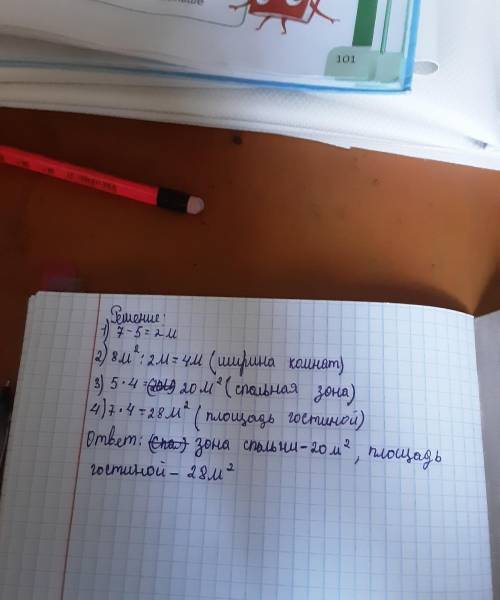 101
Решение:
1) 7-5=2м
2) 8м² : 2м = 4м (ширина комнат)
3) 5·4= 20м² (спальная зона)
4) 7·4=28м² (площадь гостиной)
Ответ: (спа.) зона спальни-20м², площадь
гостиной - 28м²